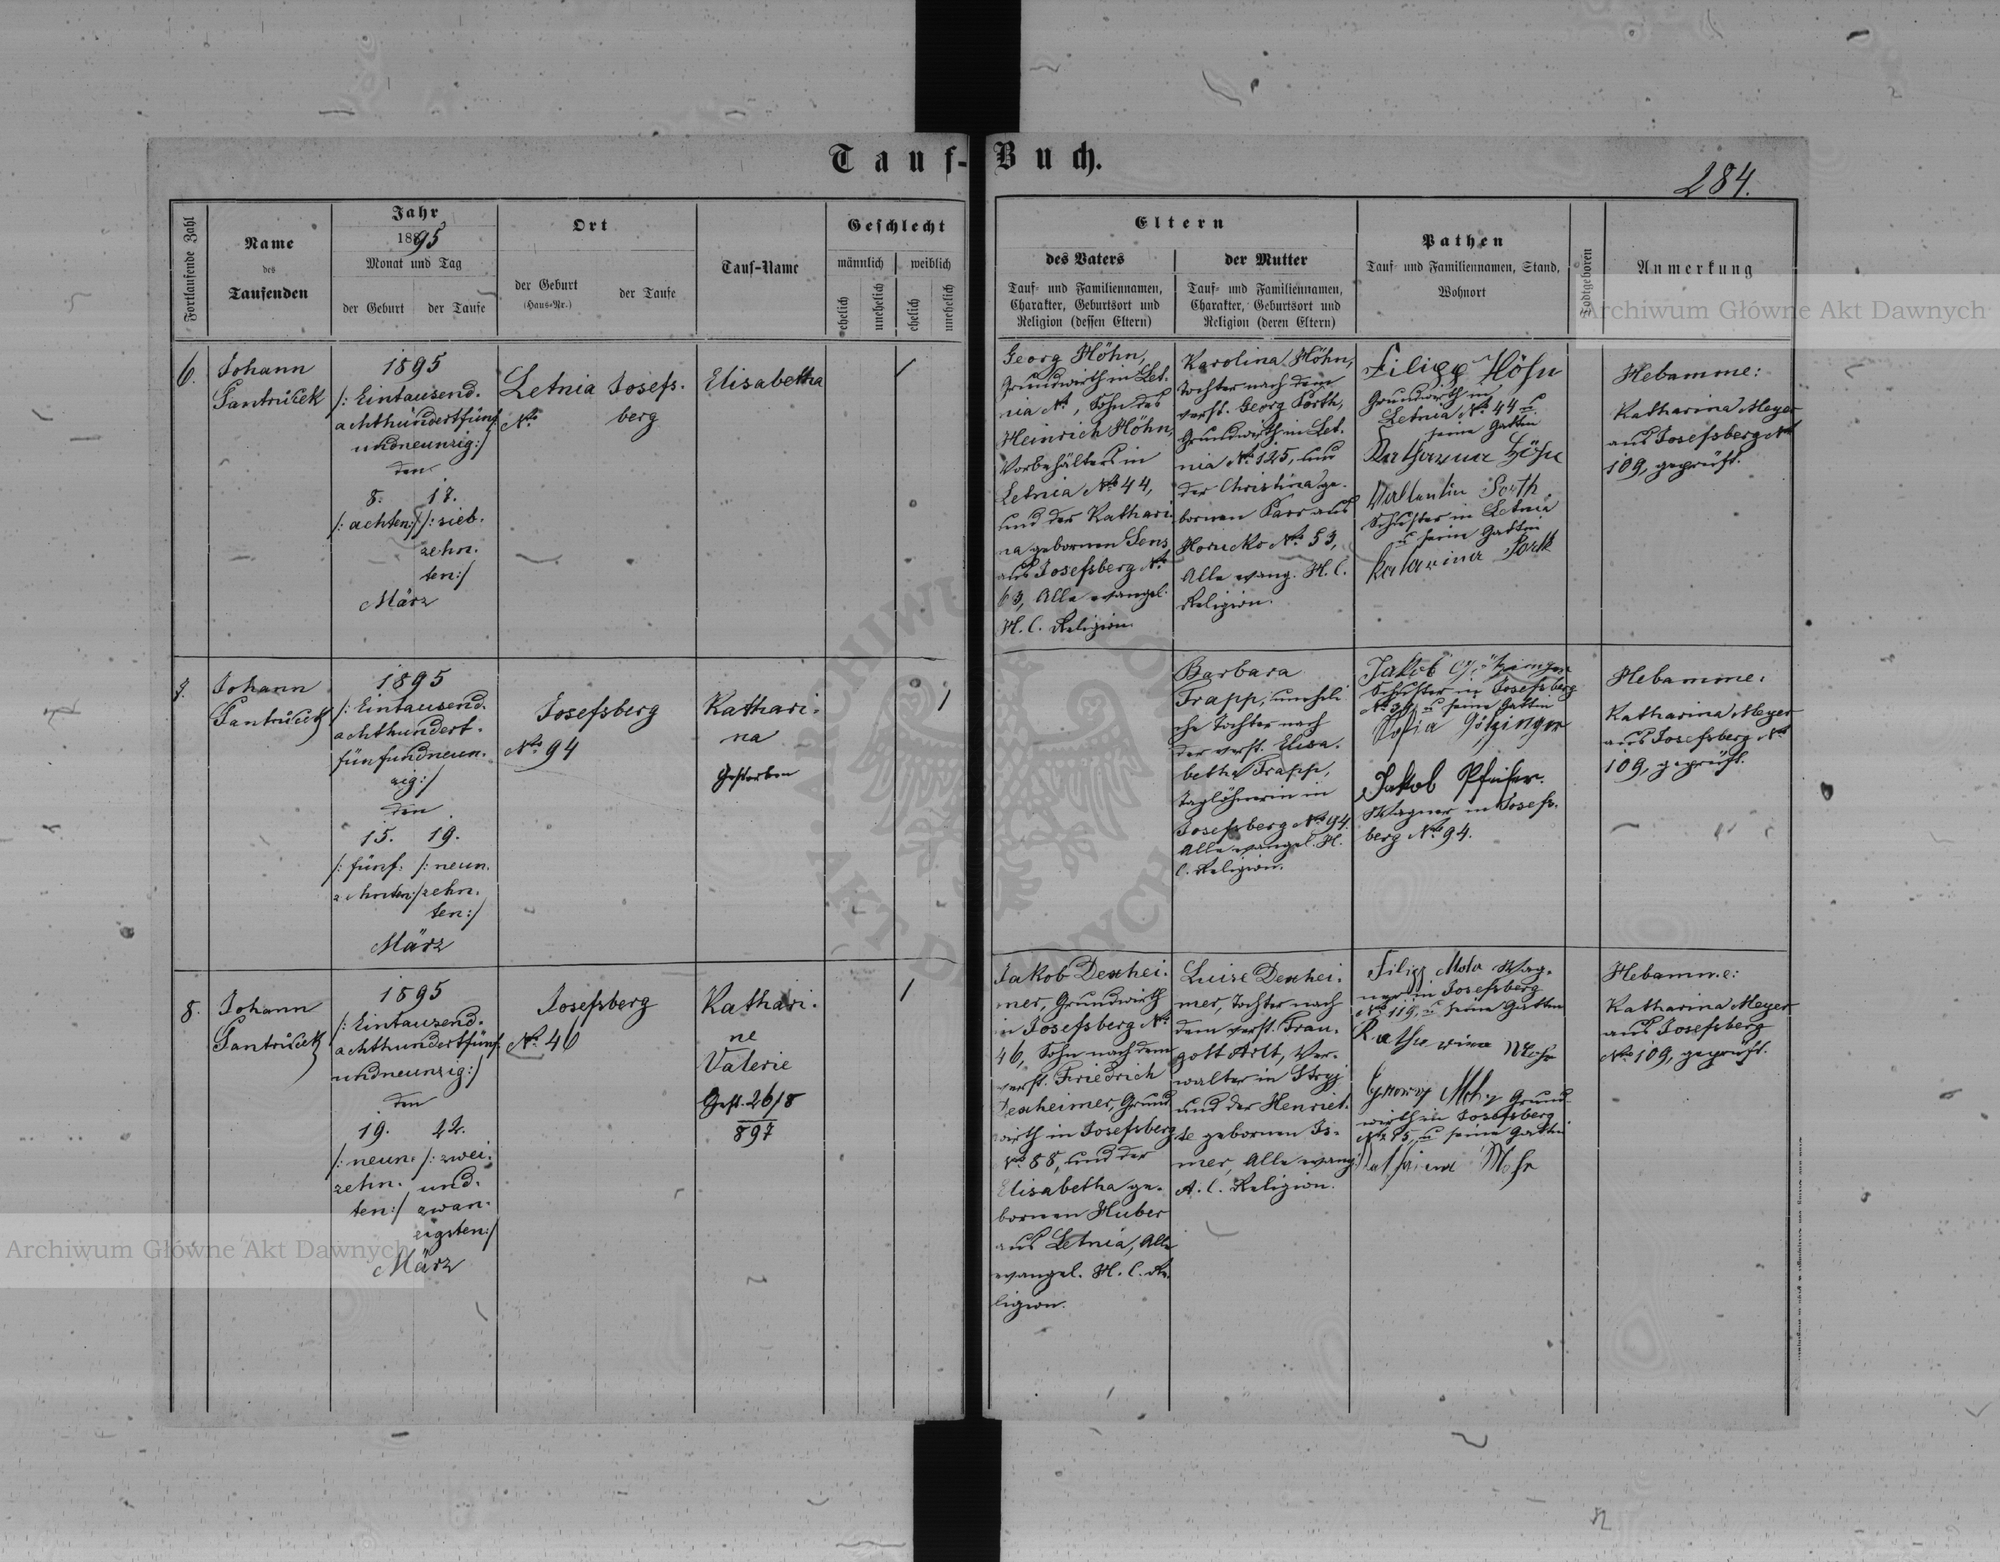 Tauf-Buch.
284.
Fortlaufende Zahl
Name
des
Taufenden
Jahr
1895
Monat und Tag
der Geburt
der Taufe
Ort
der Geburt
(Haus-Nr.)
der Taufe
Tauf-Name
Geschlecht
männlich
weiblich
ehelich
unehelich
ehelich
unehelich
Eltern
des Vaters
Tauf- und Familiennamen,
Charakter, Geburtsort und
Religion (dessen Eltern)
der Mutter
Tauf- und Familiennamen,
Charakter, Geburtsort und
Religion (deren Eltern)
Pathen
Tauf- und Familiennamen, Stand,
Wohnort
Todtgeboren
Anmerkung
6.
Johann
Pantrůček
1895
/: Eintausend.
achthundertfünf
undneunzig:/
den
8. 17.
/: achten:/ /: sieb.
zehn.
ten:/
März
Letnia
No
Josefs.
berg
Elisabetha
/
Georg Höhn,
Grundwirth in Let.
nia No, Sohn des
Heinrich Höhn,
Vorbehälters in
Letnia No 44,
und der Kathari
na gebornen Sens
aus Josefsberg No
63, Alle evangel.
H. C. Religion.
Karolina Höhn,
Tochter nach dem
verst. Georg Porth,
Grundwirth in Let.
nia No 125, und
der Christina ge.
bornen Karr aus
Horucko No 53,
Alle evang. H. C.
Religion.
Filipp Höhn
Grundwirth in
Letnia No 44 u.
seine Gattin
Katharina Höhn
Vallentin Porth
Schuster in Letnia
u seine Gattin
Katarina Porth
Hebamme:
Katharina Meyer
aus Josefsberg No
109, geprüft.
7.
Johann
Pantrůček
1895
/: Eintausend.
achthundert.
fünfundneun.
zig:/
den
15. 19.
/: fünf. /: neun.
zehnten:/ zehn.
ten:/
März
Josefsberg
No 94
Kathari.
na
Gestorben
1
Barbara
Trapp, uneheli
che Tochter nach
der verst. Elisa.
betha Trapp,
Taglöhnerin in
Josefsberg No 94.
Alle evangel. H.
C. Religion.
Jakob
Schuster in Josefsberg
u seine Gattin
Sofia Götzinger
Jakob Pfeifer.
Wagner in Josefs.
berg No 94.
Hebamme:
Katharina Meyer
aus Josefsberg No
109, geprüft.
8.
Johann
Pantrůček
1895
/: Eintausend.
achthundertfünf.
undneunzig:/
den
19. 22.
/: neun. /: zwei.
zehn. und.
ten:/ zwan.
zigsten:/
März
Josefsberg
No 46
Kathari.
ne
Valerie
Gest. 26/8
897
1
Jakob Dexhei.
mer, Grundwirth
in Josefsberg No
46, Sohn nach dem
verst. Friedrich
Dexheimer, Grund
wirth in Josefsberg
No 88, und der
Elisabetha ge.
bornen Huber
aus Letnia, Alle
evangel. H. C. Re.
ligion.
Luise Dexhei.
mer, Tochter nach
dem verst. Trau.
gott Arlt, Ver.
walter in Stryj
und der Henriet.
te gebornen Is.
mer, Alle evang.
A. C. Religion.
Filipp Mohr Wag.
ner in Josefsberg
No 119, u seine Gattin
Katharina Mohr
Georg Mohr Grund
wirth in Josefsberg
u seine Gattin
Katharina Mohr
Hebamme:
Katharina Meyer
aus Josefsberg
No 109, geprüft.
Archiwum Główne Akt Dawnych
Archiwum Główne Akt Dawnych
ARCHIWUM GŁÓWNE
AKT DAWNYCH